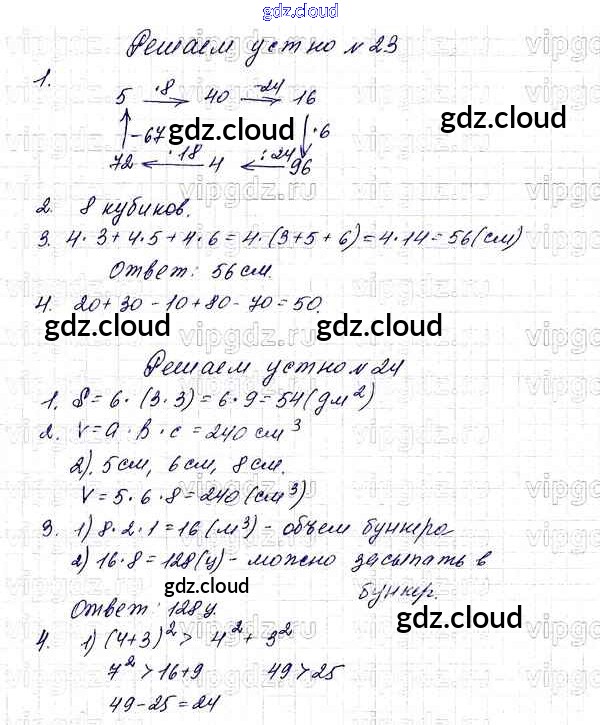 gdz.cloud
gdz.cloud
Решаем устно №23
1.
5 ·8 40 -24 16
-67 ·6
gdz.cloud
gdz.cloud
72 ·18 4 :24 96
2. 8 кубиков.
3. 4·3+4·5+4·6=4·(3+5+6)=4·14=56(см)
Ответ: 56см.
4. 20+30-10+80-70=50.
gdz.cloud
gdz.cloud
Решаем устно №24
1. S=6·(3·3)=6·9=54(дм²)
2. V=a·b·c=240 см³
2). 5см, 6см, 8см.
V=5·6·8=240(см³)
3. 1) 8·2·1=16(м³)- объем бункера
2) 16·8=128(ц)- можно засыпать в
бункер.
gdz.cloud
Ответ: 128ц.
gdz.cloud
4. 1) (4+3)²> 4²+3²
7²>16+9 49>25
49-25=24